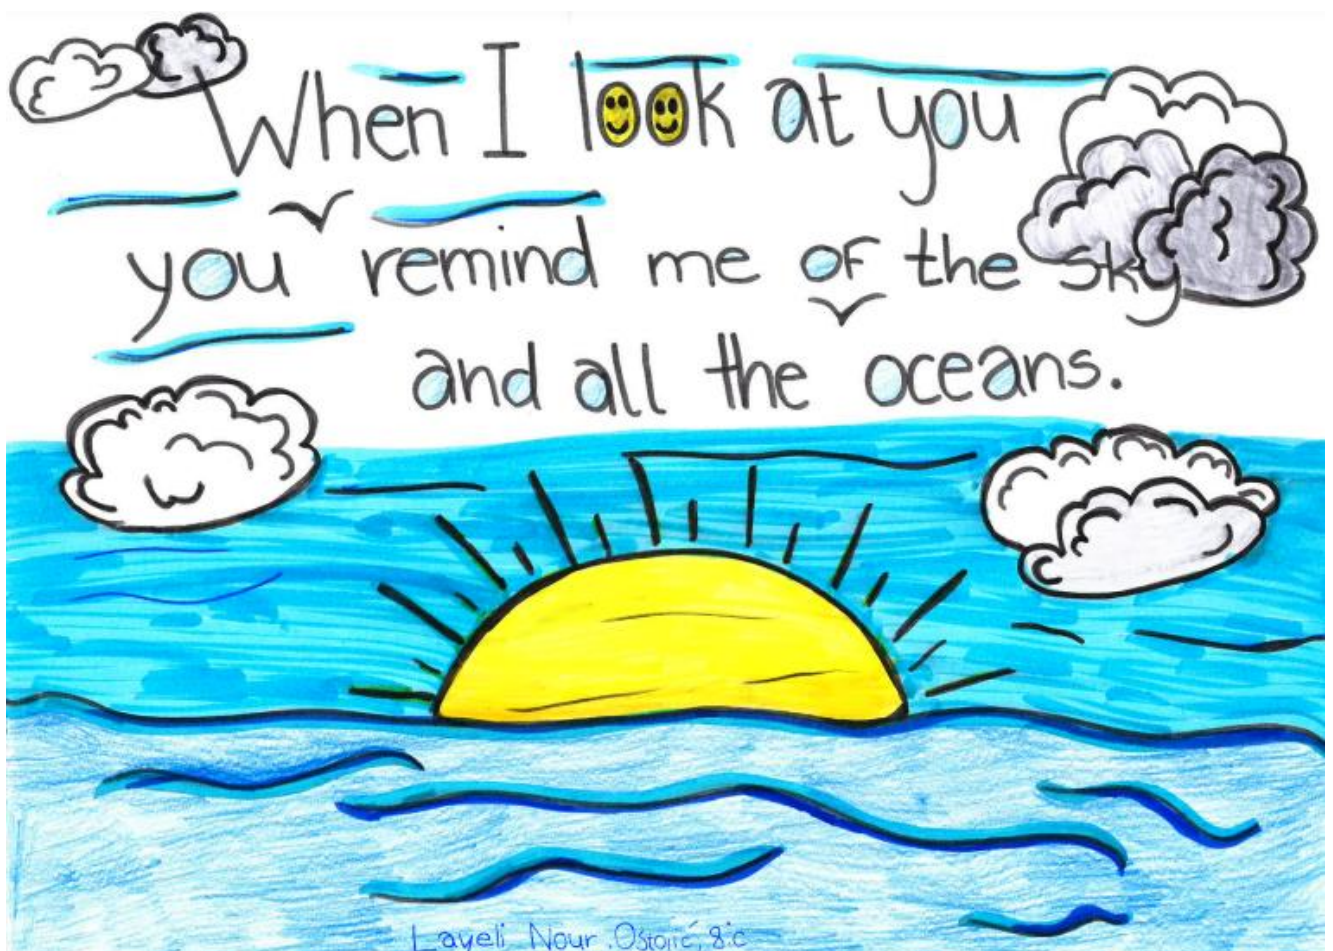 When I look at you
you remind me of the sky
and all the oceans.
Layeli Nour Ostojić, 8.c